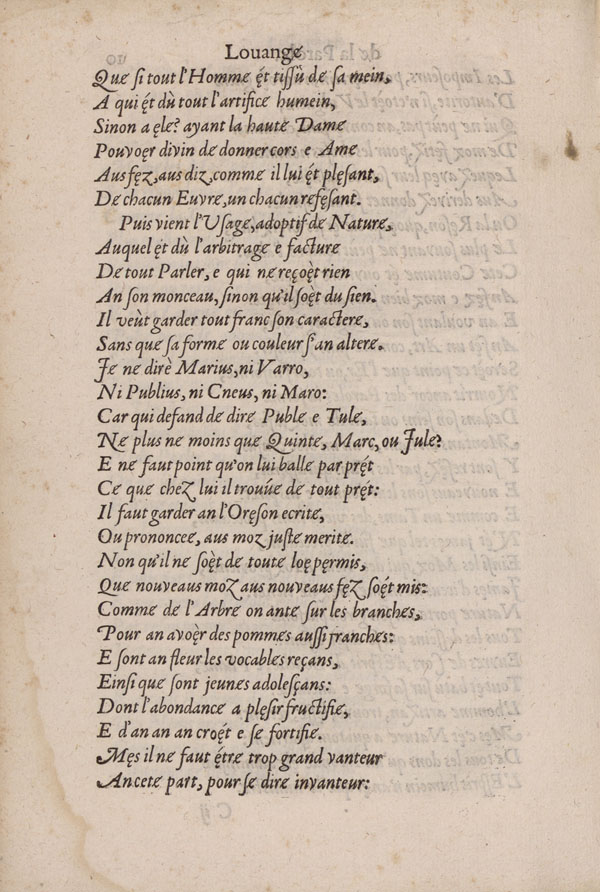 Louange
Que si tout l'Homme ę́t tissù de sa mein,
A qui ę́t dù tout l'artifice humein,
Sinon a ęle? ayant la haute Dame
Pouvoęr divin de donner cors e Ame
Aus fęz, aus diz, comme il lui ę́t plęsant,
De chacun Euvre, un chacun refęsant.
Puis vient l'Usage, adoptif de Nature,
Auquel ę́t dù l'arbitrage e facture
De tout Parler, e qui ne reçoę̀t rien
An son monceau, sinon qu'il soę̀t du sien.
Il veùt garder tout franc son caractere,
Sans que sa forme ou couleur s'an altere.
Je ne dirè Marius, ni Varro,
Ni Publius, ni Cneus, ni Maro:
Car qui defand de dire Puble e Tule,
Ne plus ne moins que Quinte, Marc, ou Jule?
E ne faut point qu'on lui balle par prę́t
Ce que chez lui il trouúe de tout prę́t:
Il faut garder an l'Oręson ecrite,
Ou prononcee, aus moz juste merite.
Non qu'il ne soę̀t de toute loę pęrmis,
Que nouveaus moz aus nouveaus fęz soę́t mis:
Comme de l'Arbre on ante sur les branches,
Pour an avoę̀r des pommes aussi franches:
E sont an fleur les vocables reçans,
Einsi que sont jeunes adolesçans:
Dont l'abondance a plęsir fructifie,
E d'an an an croę́t e se fortifie.
Męs il ne faut ę́tre trop grand vanteur
An cete part, pour se dire invanteur:
C ij